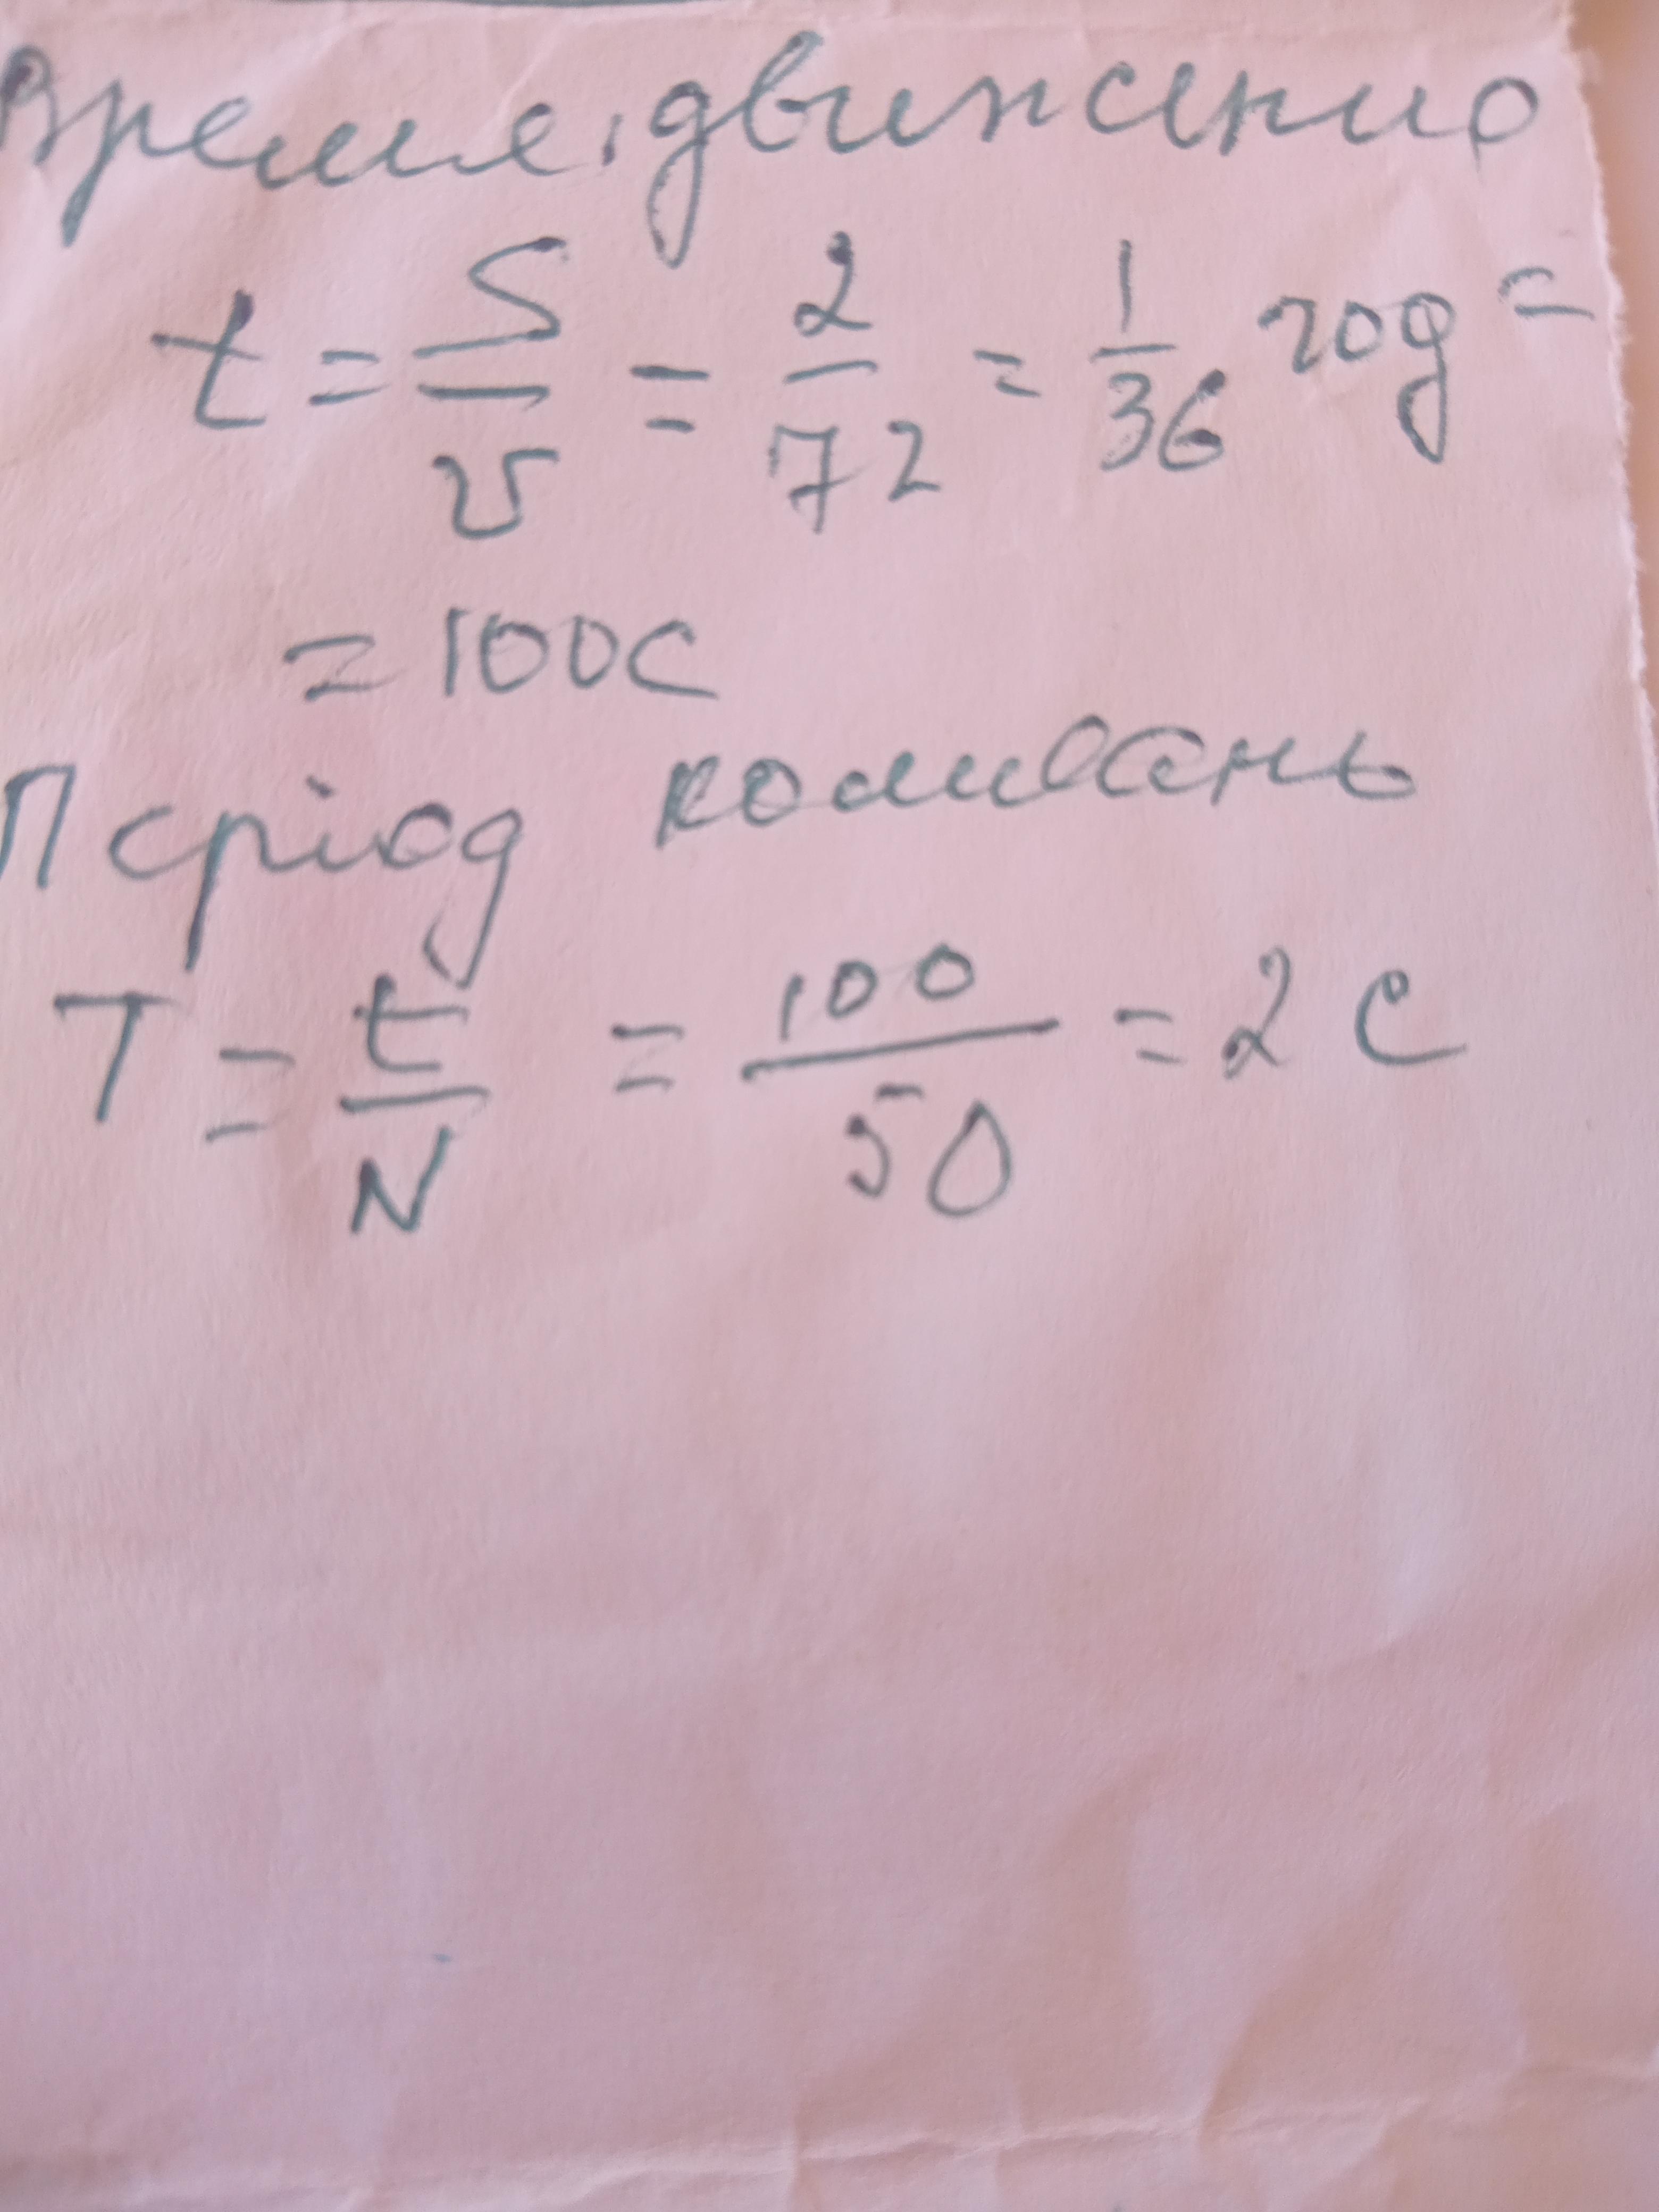 Время движению
t = S/υ = 2/72 = 1/36 год =
= 100с
Період коливань
T = t/N = 100/50 = 2 с